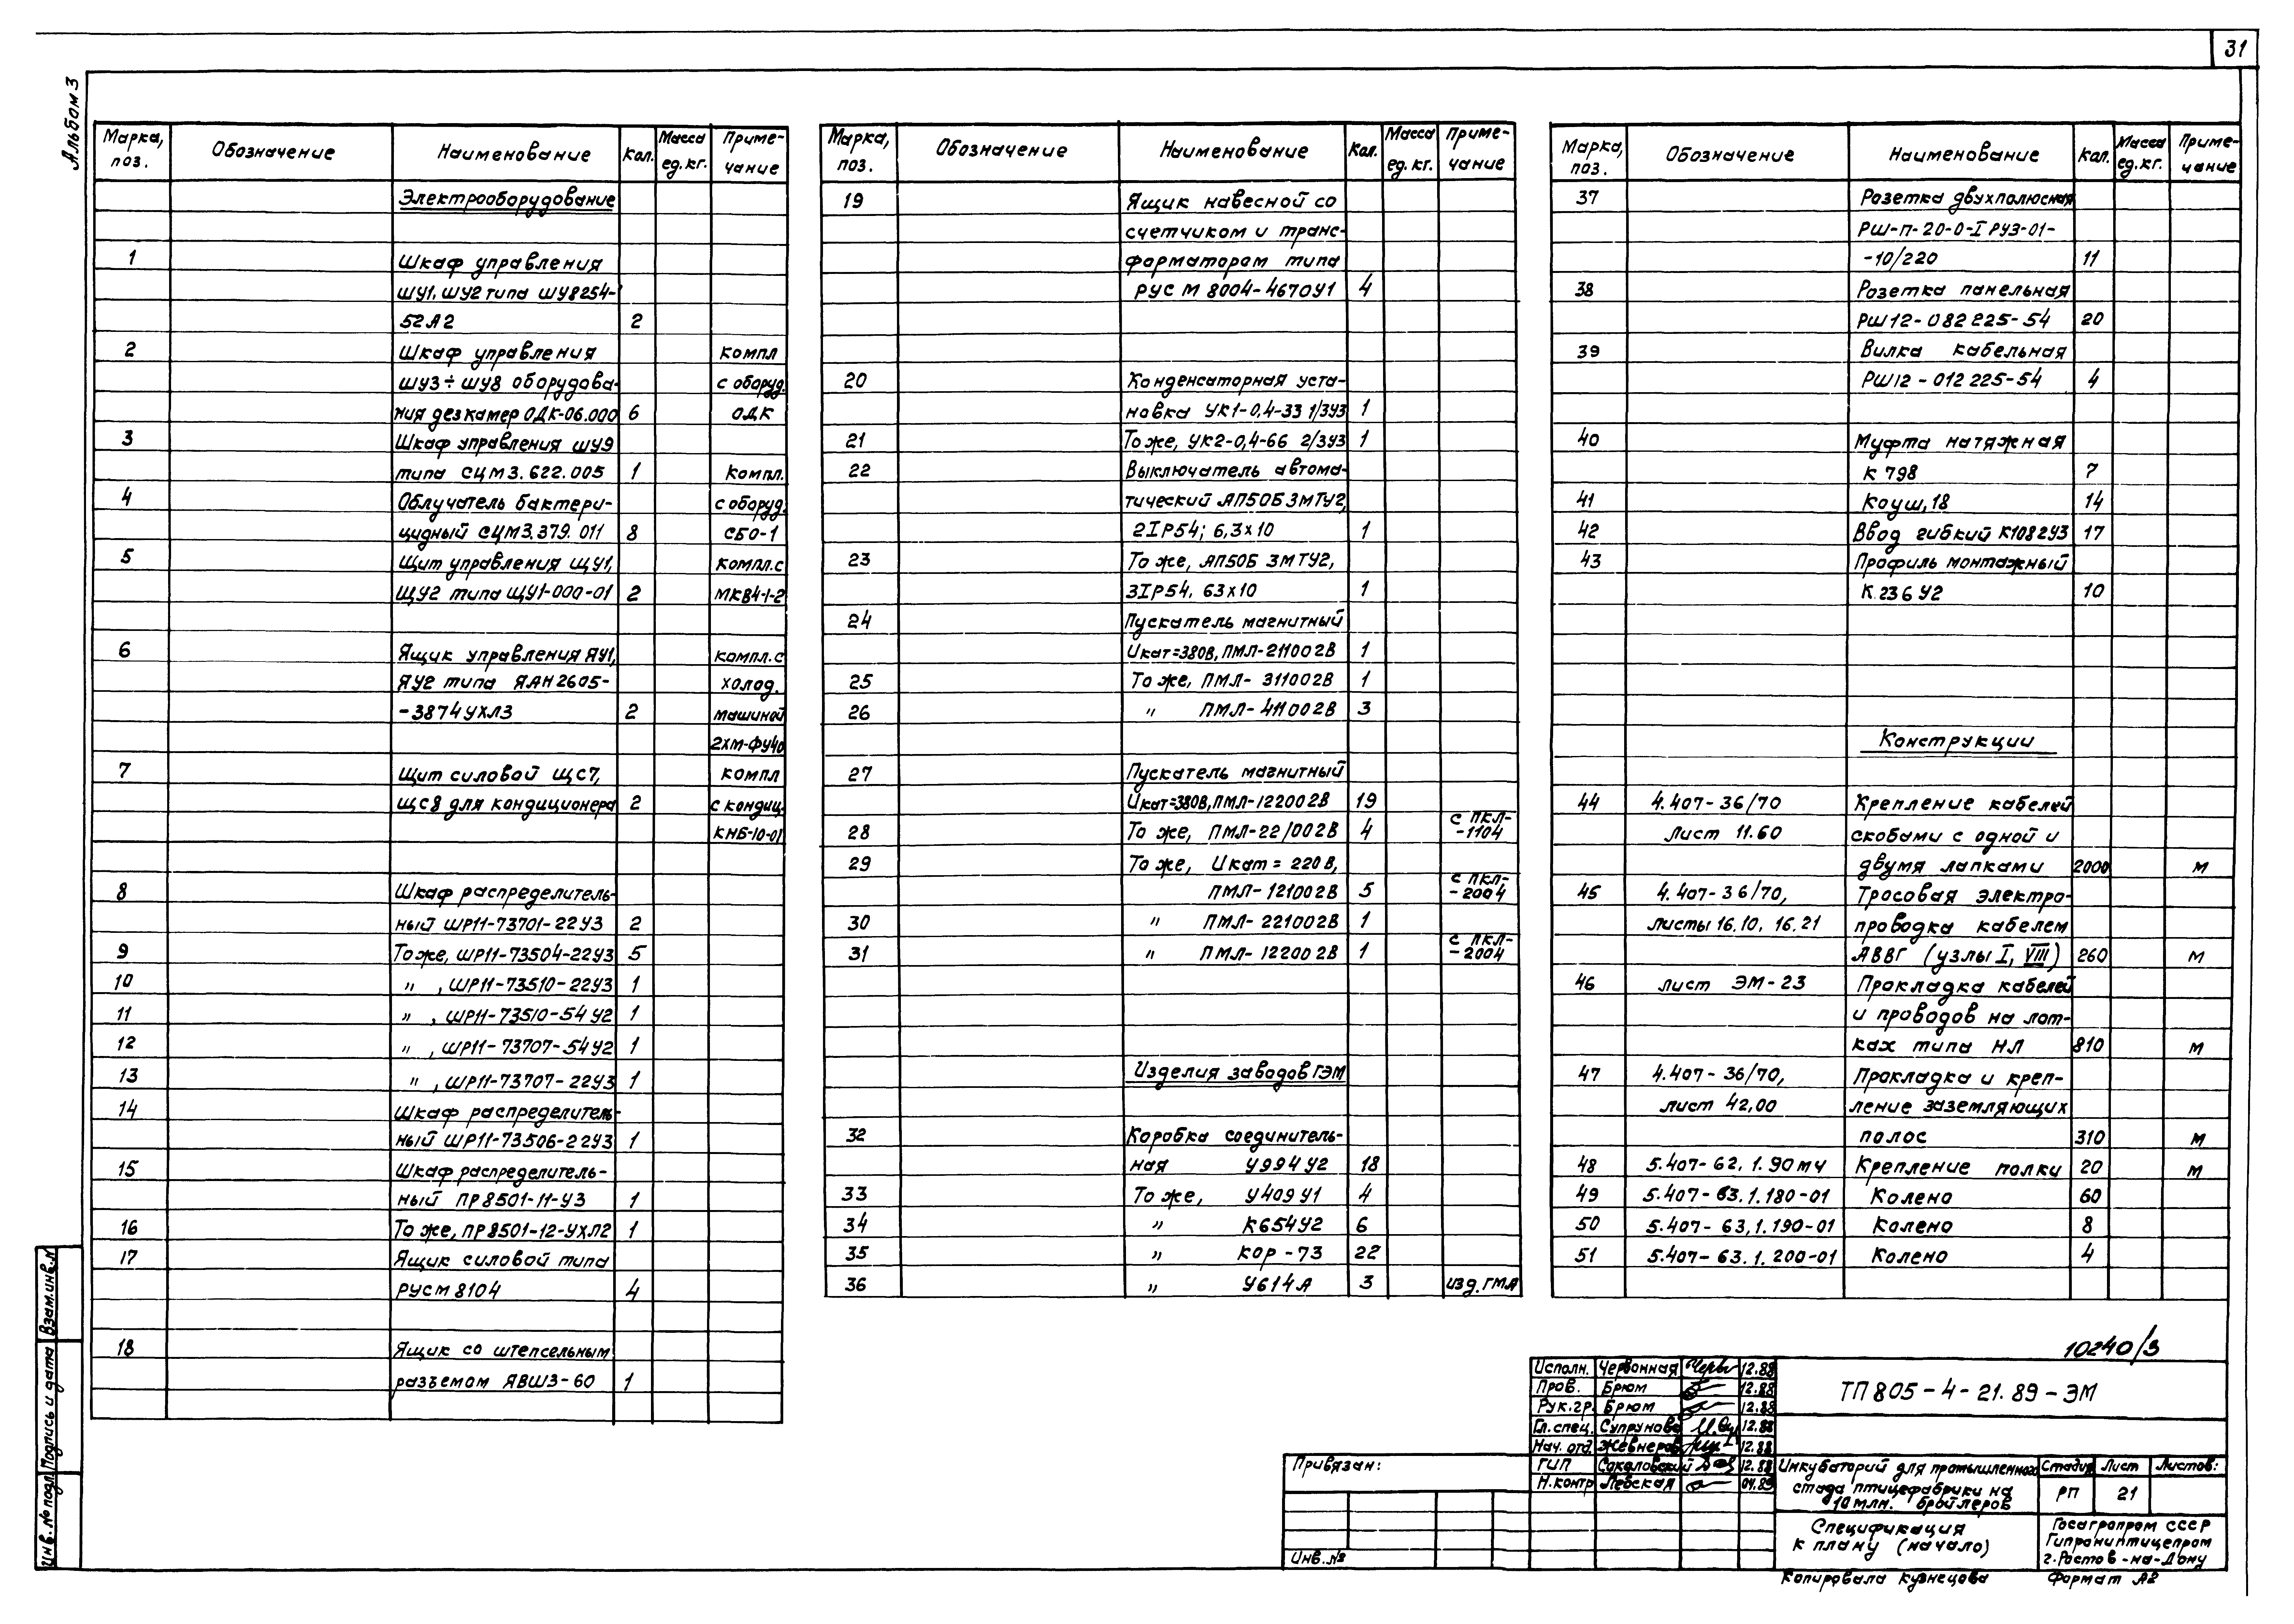 31
Альбом 3
Марка, поз. Обозначение Наименование Кол. Масса ед.кг. Приме-чание
Электрооборудование
1 Шкаф управления
ШУ1, ШУ2 типа ШУ8254-
52А2 2
2 Шкаф управления компл
ШУ3÷ШУ8 оборудова- с оборуд.
ния дезкамер ОДК-06.000 6 ОДК
3 Шкаф управления ШУ9
типа СЦМ3.622.005 1 компл.
4 Облучатель бактери- с оборуд.
цидный СЦМ3.379.011 8 СБО-1
5 Щит управления ЩУ1, компл.с
ЩУ2 типа ЩУ1-000-01 2 МКВ4-1-2
6 Ящик управления ЯУ1, компл.с
ЯУ2 типа ЯАН2605- холод.
-3874УХЛ3 2 машиной
2ХМ-ФУ40
7 Щит силовой ЩС7, компл
ЩС8 для кондиционера 2 с кондиц.
КНБ-10-01
8 Шкаф распределитель-
ный ШР11-73701-22У3 2
9 То же, ШР11-73504-22У3 5
10 " , ШР11-73510-22У3 1
11 " , ШР11-73510-54У2 1
12 " , ШР11-73707-54У2 1
13 " , ШР11-73707-22У3 1
14 Шкаф распределитель-
ный ШР11-73506-22У3 1
15 Шкаф распределитель-
ный ПР8501-11-У3 1
16 То же, ПР8501-12-УХЛ2 1
17 Ящик силовой типа
РУСМ8104 4
18 Ящик со штепсельным
разъемом ЯВШ3-60 1
Марка, поз. Обозначение Наименование Кол. Масса ед.кг. Приме-чание
19 Ящик навесной со
счетчиком и транс-
форматором типа
РУСМ 8004-4670У1 4
20 Конденсаторная уста-
новка УК1-0,4-33 1/3У3 1
21 То же, УК2-0,4-66 2/3У3 1
22 Выключатель автома-
тический АП50Б3МТУ2,
2IP54; 6,3х10 1
23 То же, АП50Б 3МТУ2,
3IP54, 63х10 1
24 Пускатель магнитный
Uкат=380В, ПМЛ-211002В 1
25 То же, ПМЛ-311002В 1
26 " ПМЛ-411002В 3
27 Пускатель магнитный
Uкат=380В, ПМЛ-122002В 19
28 То же, ПМЛ-221002В 4 с ПКЛ-
-1104
29 То же, Uкат=220В,
ПМЛ-121002В 5 с ПКЛ-
-2004
30 " ПМЛ-221002В 1
31 " ПМЛ-122002В 1 с ПКЛ-
-2004
Изделия заводов ГЭМ
32 Коробка соединитель-
ная У994У2 18
33 То же, У409У1 4
34 " К654У2 6
35 " КОР-73 22
36 " У614А 3 изд.ГМА
Марка, поз. Обозначение Наименование Кол. Масса ед.кг. Приме-чание
37 Розетка двухполюсная
РШ-п-20-0-I РУ3-01-
-10/220 11
38 Розетка панельная
РШ12-082225-54 20
39 Вилка кабельная
РШ12-012225-54 4
40 Муфта натяжная
К798 7
41 Коуш, 18 14
42 Ввод гибкий К1082У3 17
43 Профиль монтажный
К236У2 10
Конструкции
44 4.407-36/70 Крепление кабелей
лист 11.60 скобами с одной и
двумя лапками 2000 м
45 4.407-36/70, Тросовая электро-
листы 16.10, 16.21 проводка кабелем
АВВГ (узлы I, VIII) 260 м
46 лист ЭМ-23 Прокладка кабелей
и проводов на лот-
ках типа НЛ 810 м
47 4.407-36/70, Прокладка и креп-
лист 42,00 ление заземляющих
полос 310 м
48 5.407-62.1.90МЧ Крепление полки 20 м
49 5.407-63.1.180-01 Колено 60
50 5.407-63.1.190-01 Колено 8
51 5.407-63.1.200-01 Колено 4
10240/3
Исполн. Червонная 12.88
Пров. Брюм 12.88
Рук.гр. Брюм 12.88
Гл.спец. Супрунова 12.88
Нач.отд. Жевнеров 12.88
ГИП Соколовский 12.88
Н.контр Левская 04.89
ТП805-4-21.89-ЭМ
Инкубаторий для промышленного
стада птицефабрики на
10 млн. бройлеров
Стадия Лист Листов:
РП 21
Спецификация
к плану (начало)
Госагропром СССР
Гипрониптицепром
г.Ростов-на-Дону
Привязан:
Инв.№
Копировала Кузнецова Формат А2
Взам.инв.№
Подпись и дата
Инв.№ подл.